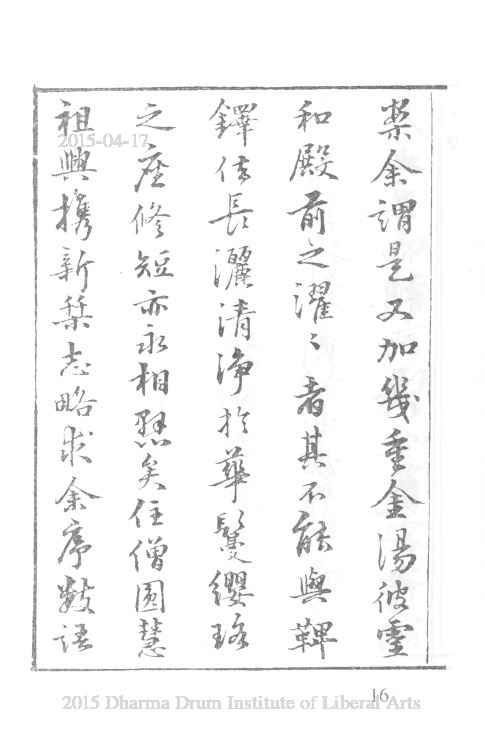 槩余謂是又加幾重金湯彼靈
和殿前之濯〻者其不能與鞞
鐸佉長灑清浄於華鬘纓珞
之座修短亦永相懸矣住僧圓慧
祖興攜新槧志略求余序數語
2015-04-17
16
2015 Dharma Drum Institute of Liberal Arts